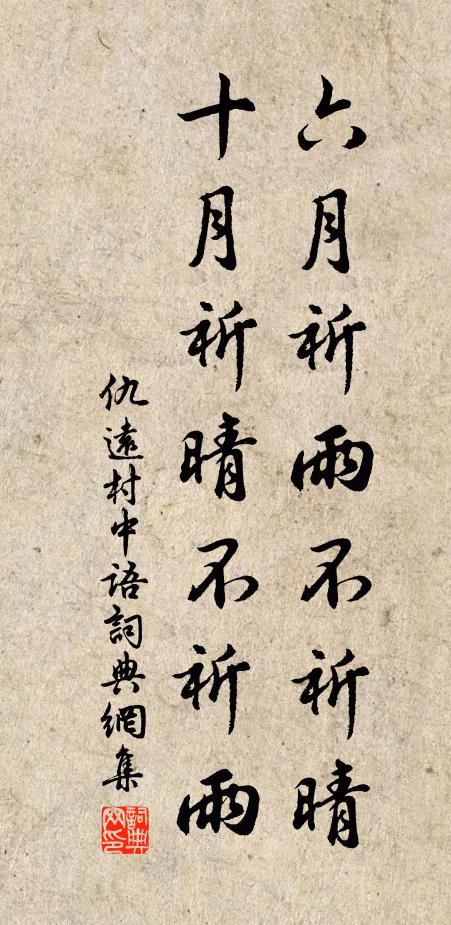 六月祈雨不祈晴
十月祈晴不祈雨
仇遠村中語詞典網集
詞典網印